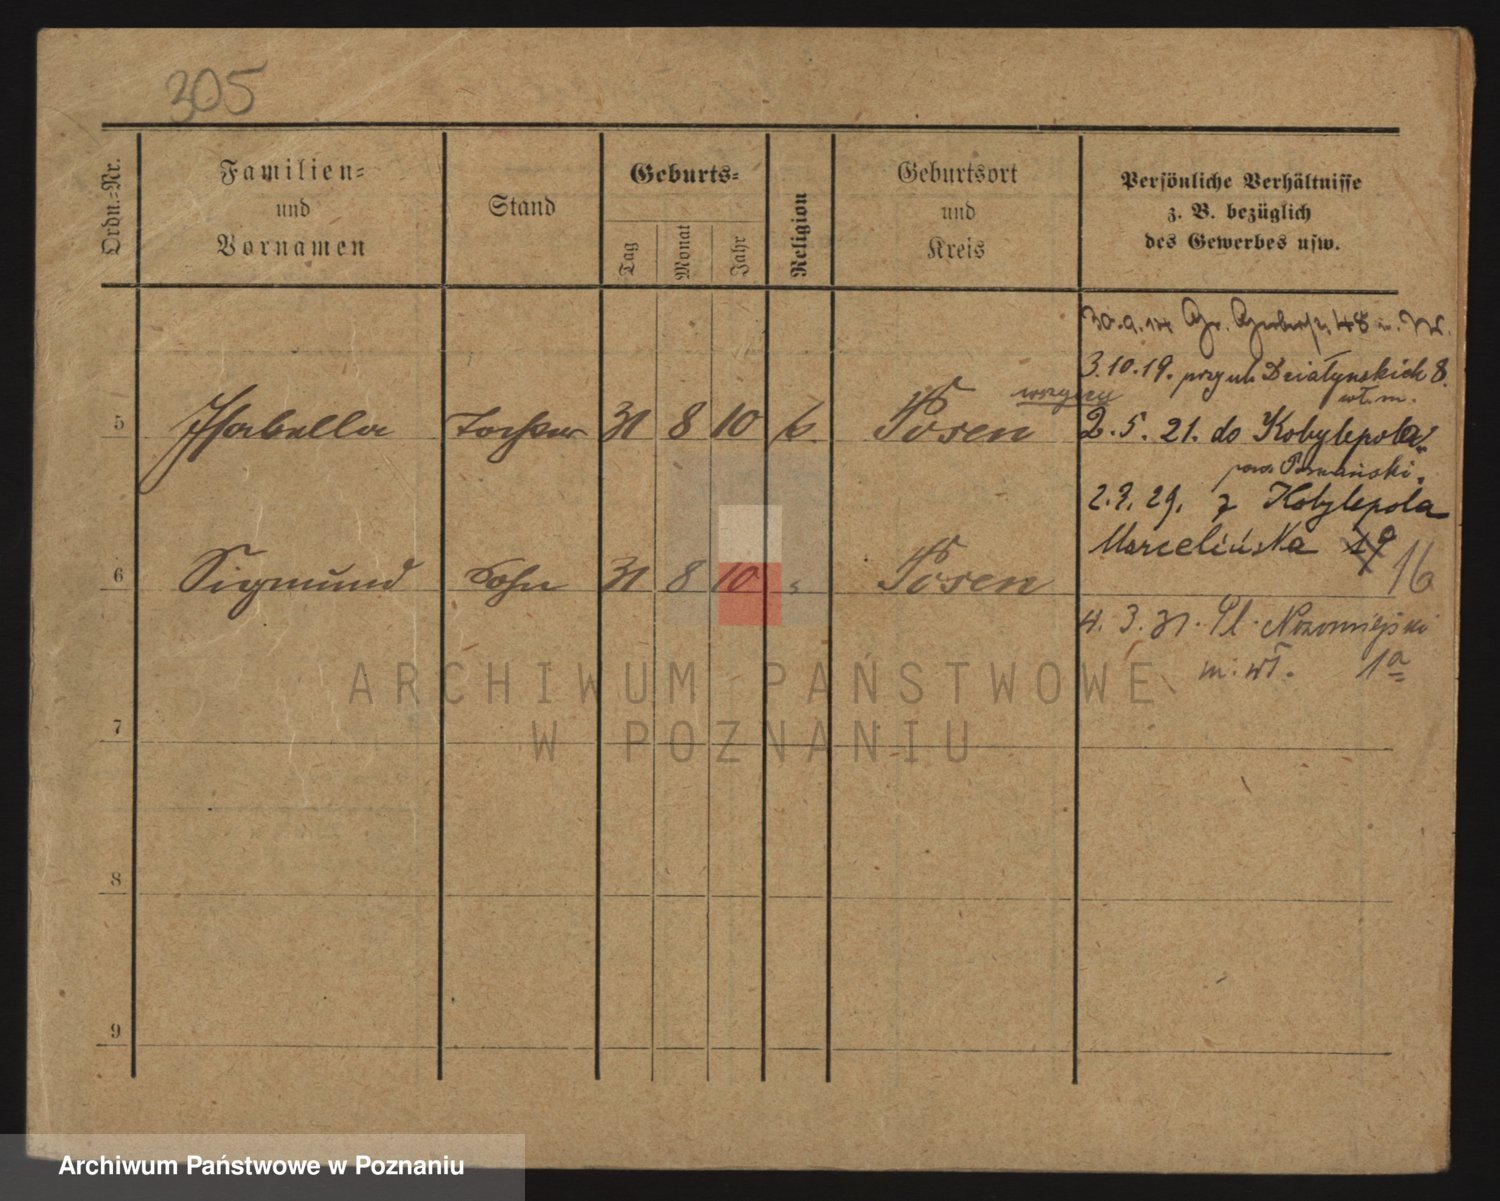 305
Ordn.-Nr.
Familien-
und
Vornamen
Stand
Geburts-
Tag
Monat
Jahr
Religion
Geburtsort
und
Kreis
Persönliche Verhältnisse
z. B. bezüglich
des Gewerbes usw.
30.9.14 Gr. 48
3.10.19. przy ul. Działynskich 8.
wł. m.
wszyscy
5 Isabella Tochter 31 8 10 k. Posen
2. 5. 21. do Kobylepola
pow. Poznański.
29. z Kobylepola
Marcelińska 16
6 Sigmund Sohn 31 8 10 " Posen
4. 3. 31. Pl. Nowomiejski
m. wł. 1a
7
8
9
ARCHIWUM PAŃSTWOWE
W POZNANIU
Archiwum Państwowe w Poznaniu